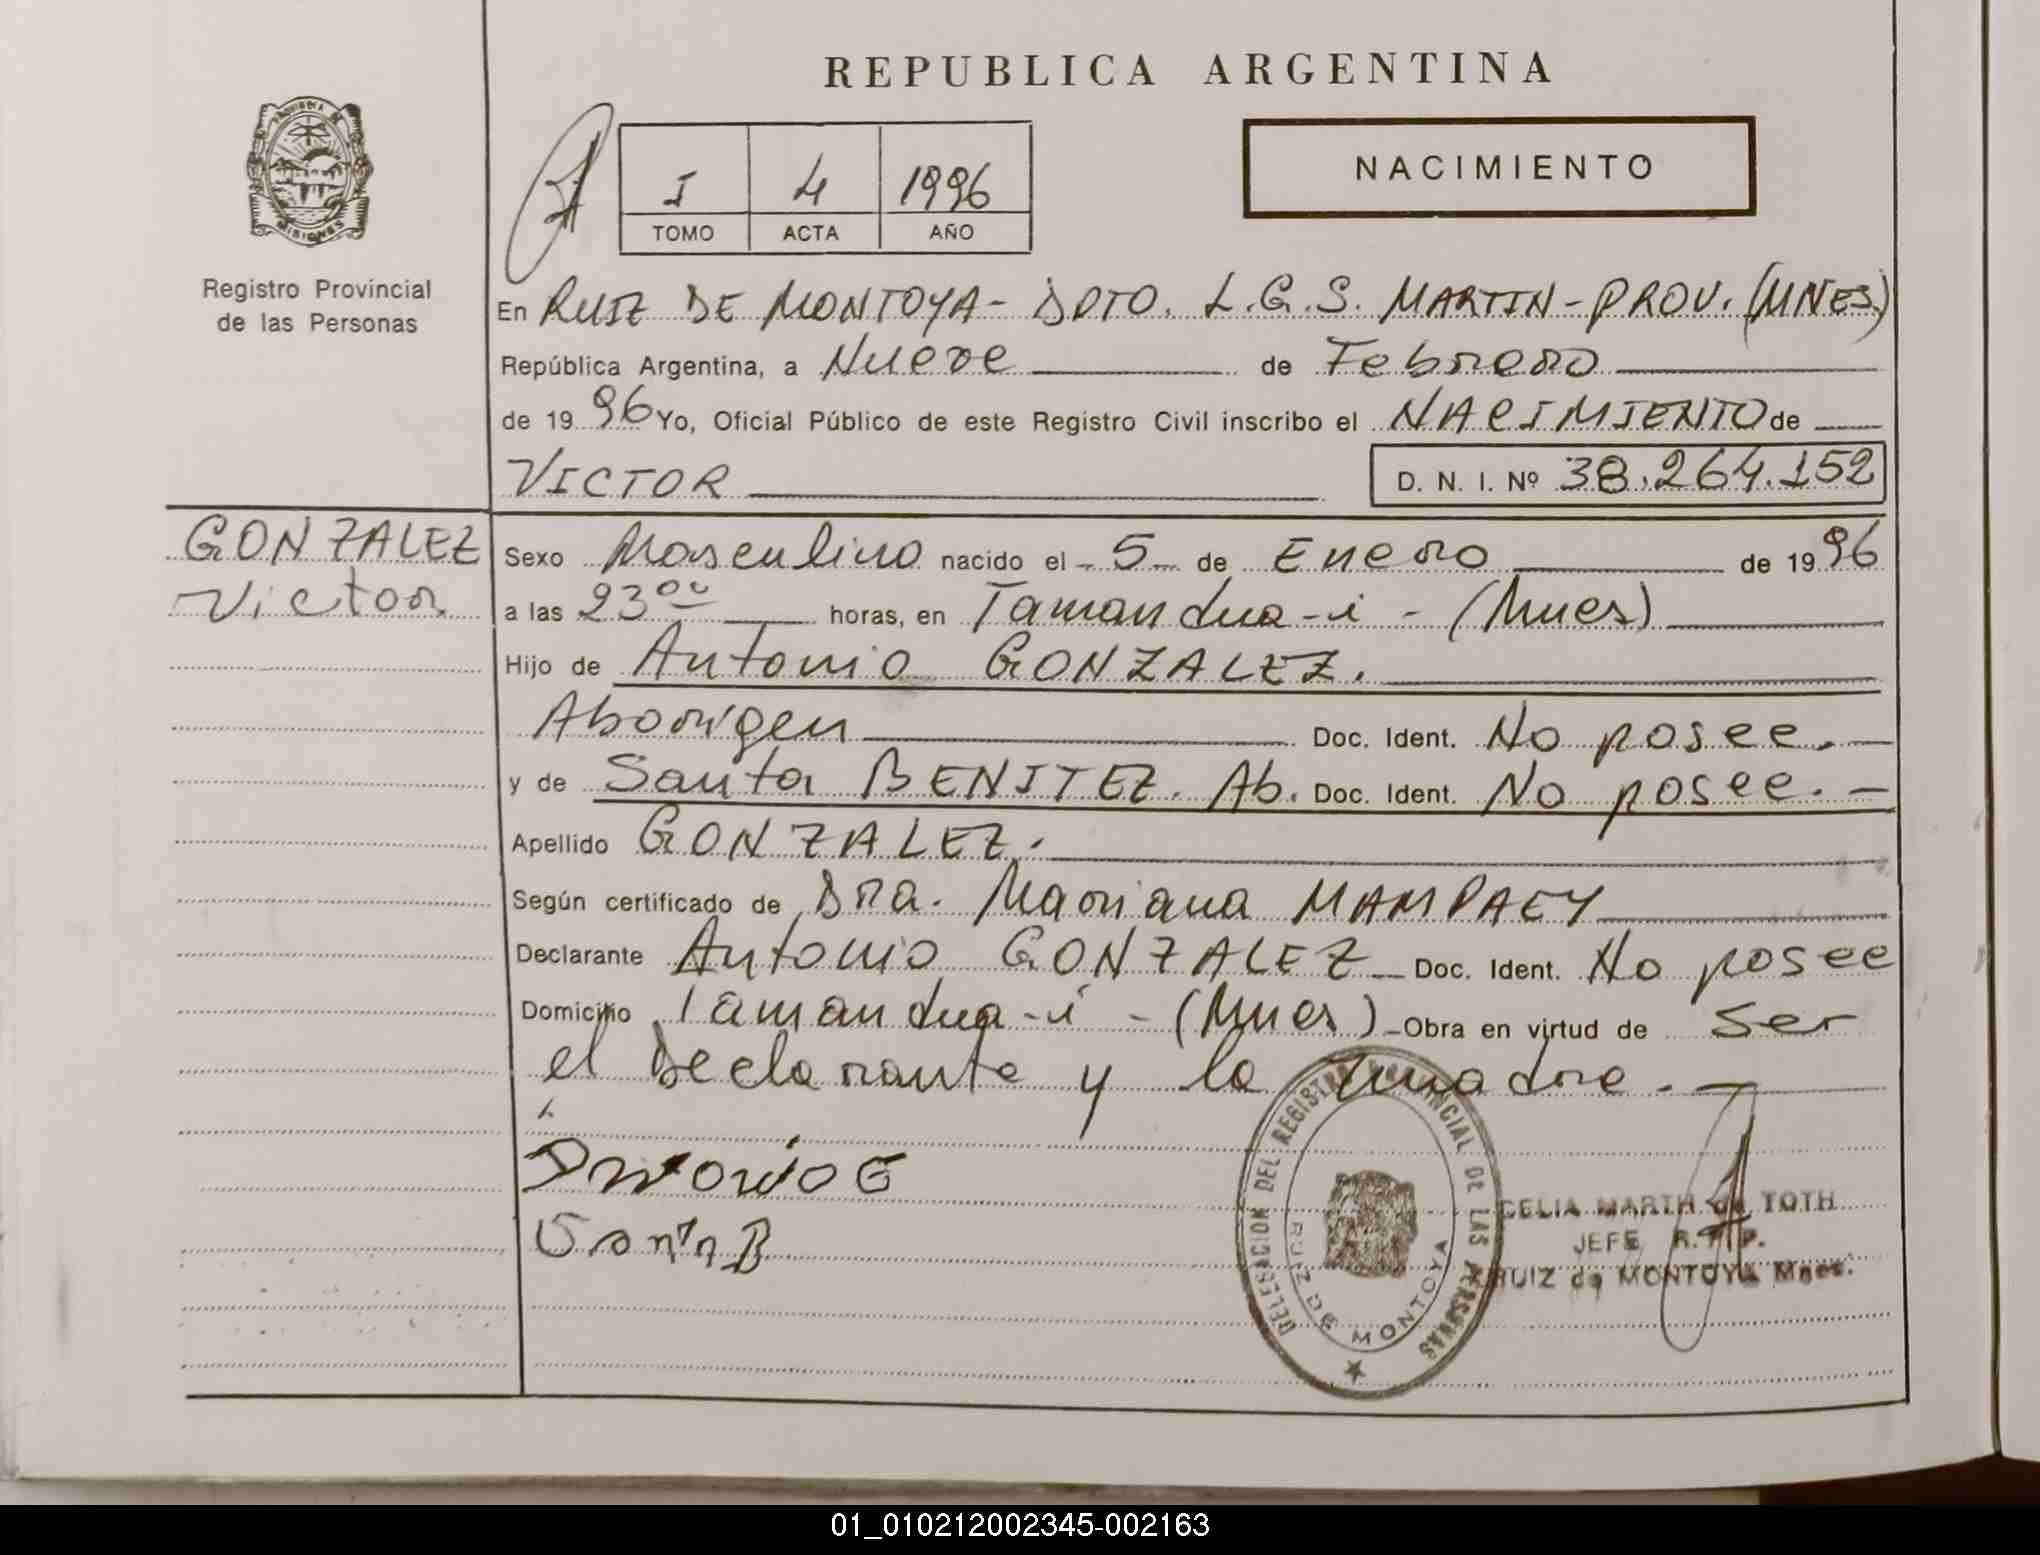 REPUBLICA ARGENTINA
PROVINCIA DE MISIONES
Registro Provincial
de las Personas
I 4 1996
TOMO ACTA AÑO
NACIMIENTO
En RUIZ DE MONTOYA - DPTO. L.G.S. MARTIN - PROV. (MNES.)
República Argentina, a Nueve de Febrero
de 1996 Yo, Oficial Público de este Registro Civil inscribo el NACIMIENTO de
VICTOR D. N. I. Nº 38.264.152
GONZALEZ
Victor
Sexo Masculino nacido el 5 de Enero de 1996
a las 23 00 horas, en Tamandua-i - (Mnes)
Hijo de Antonio GONZALEZ.
Aborigen Doc. Ident. No posee.
y de Santa BENITEZ. Ab. Doc. Ident. No posee. -
Apellido GONZALEZ.
Según certificado de Dra. Mariana MAMPAEY
Declarante Antonio GONZALEZ Doc. Ident. No posee
Domicilio Tamandua-i - (Mnes) Obra en virtud de ser
el Declarante y la madre. -
Antonio G
Santa B
DELEGACION DEL REGISTRO PROVINCIAL DE LAS PERSONAS
RUIZ DE MONTOYA
CELIA MARTH de TOTH
JEFE R.P.P.
RUIZ de MONTOYA Mnes.
01_010212002345-002163